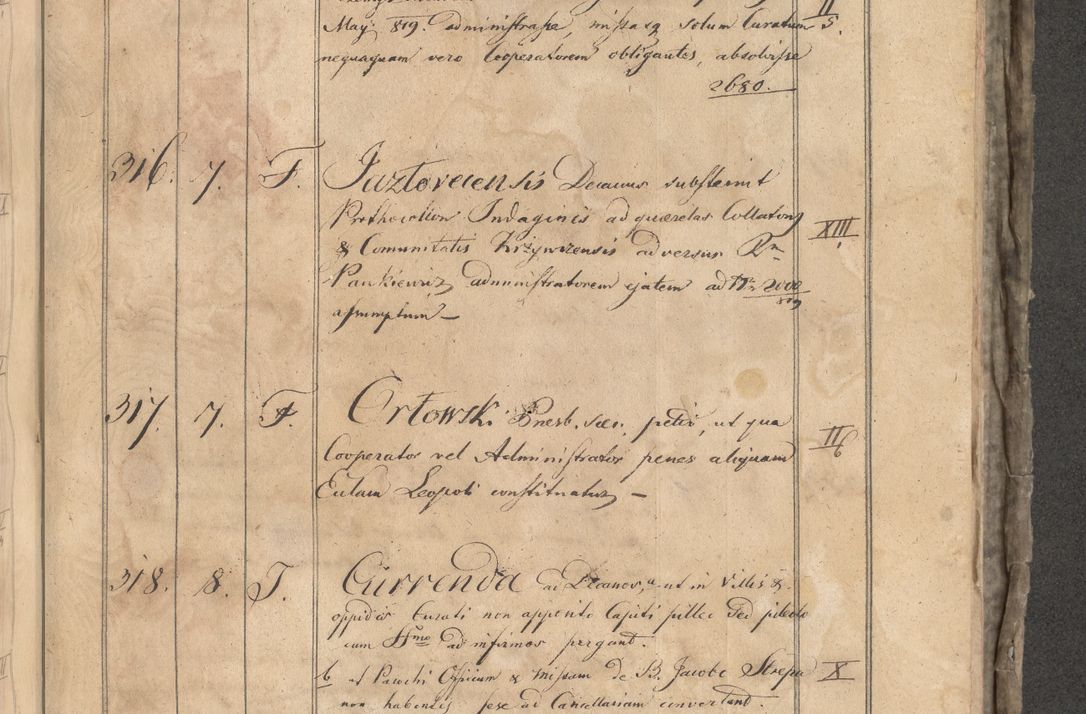 May: 819. administrasse, missasq solum Curatum II 5.
nequaquam vero Cooperatorem obligantes, absolvisse
2680.
316. 7. F. Jazlovecensis Decanus substernit
Prothocollon Indaginis ad quærelas Collatoris XIII
& Comunitatis Krzywcensis adversus Rm
Pankiewicz administratorem ejatem ad Nr 2000
819
assumptum —
317. 7. F. Orłowski Presb. sæc. petit, ut qua
Cooperator vel Administrator penes aliquam II 6
Eccłam Leopoli constituatur —
318. 8. F. Currenda ad Decanos, a ut in Villis &
oppidis Curati non apposito Capiti pilleo sed pileolo
cum SSmo ad infirmos pergant.
b ut Parochi Officium & Missam de B. Jacobo Strepa X
non habentes sese ad Cancellariam convertant.